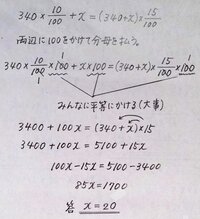 340 × 10/100 + x = (340+x) × 15/100
両辺に100をかけて分母をはらう。
340 × 10/100 × 100 + x × 100 = (340+x) × 15/100 × 100
1 1 1 1
みんなに平等にかける(大事)
3400 + 100x = (340+x)×15
3400 + 100x = 5100 + 15x
100x - 15x = 5100 - 3400
85x = 1700
答 x = 20